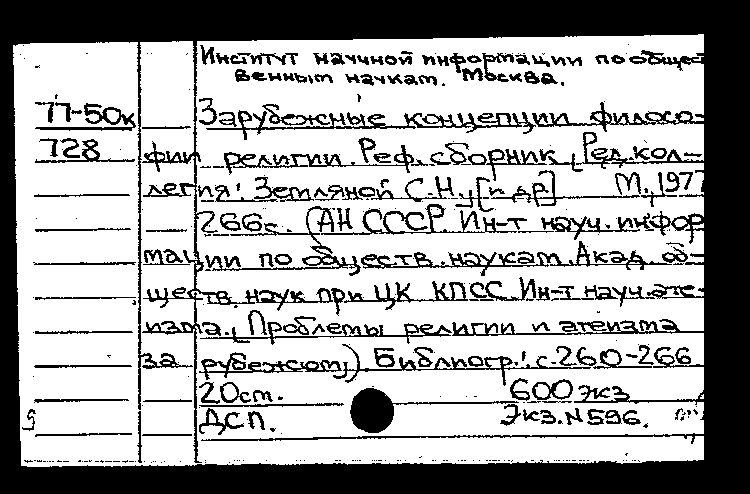 Институт научной информации по общест
венным наукам. Москва.
77-50к Зарубежные концепции филосо-
728 фии религии. Реф. сборник. [Ред. кол-
легия: Земляной С.Н., [и др.] М., 1977
266с. (АН СССР. Ин-т науч. инфор
мации по обществ. наукам. Акад. об-
ществ. наук при ЦК КПСС. Ин-т науч. ате-
изма. [Проблемы религии и атеизма
за рубежом]). Библиогр.: с. 260-266
20см. 600 экз.
ДСП. Экз. N 596.